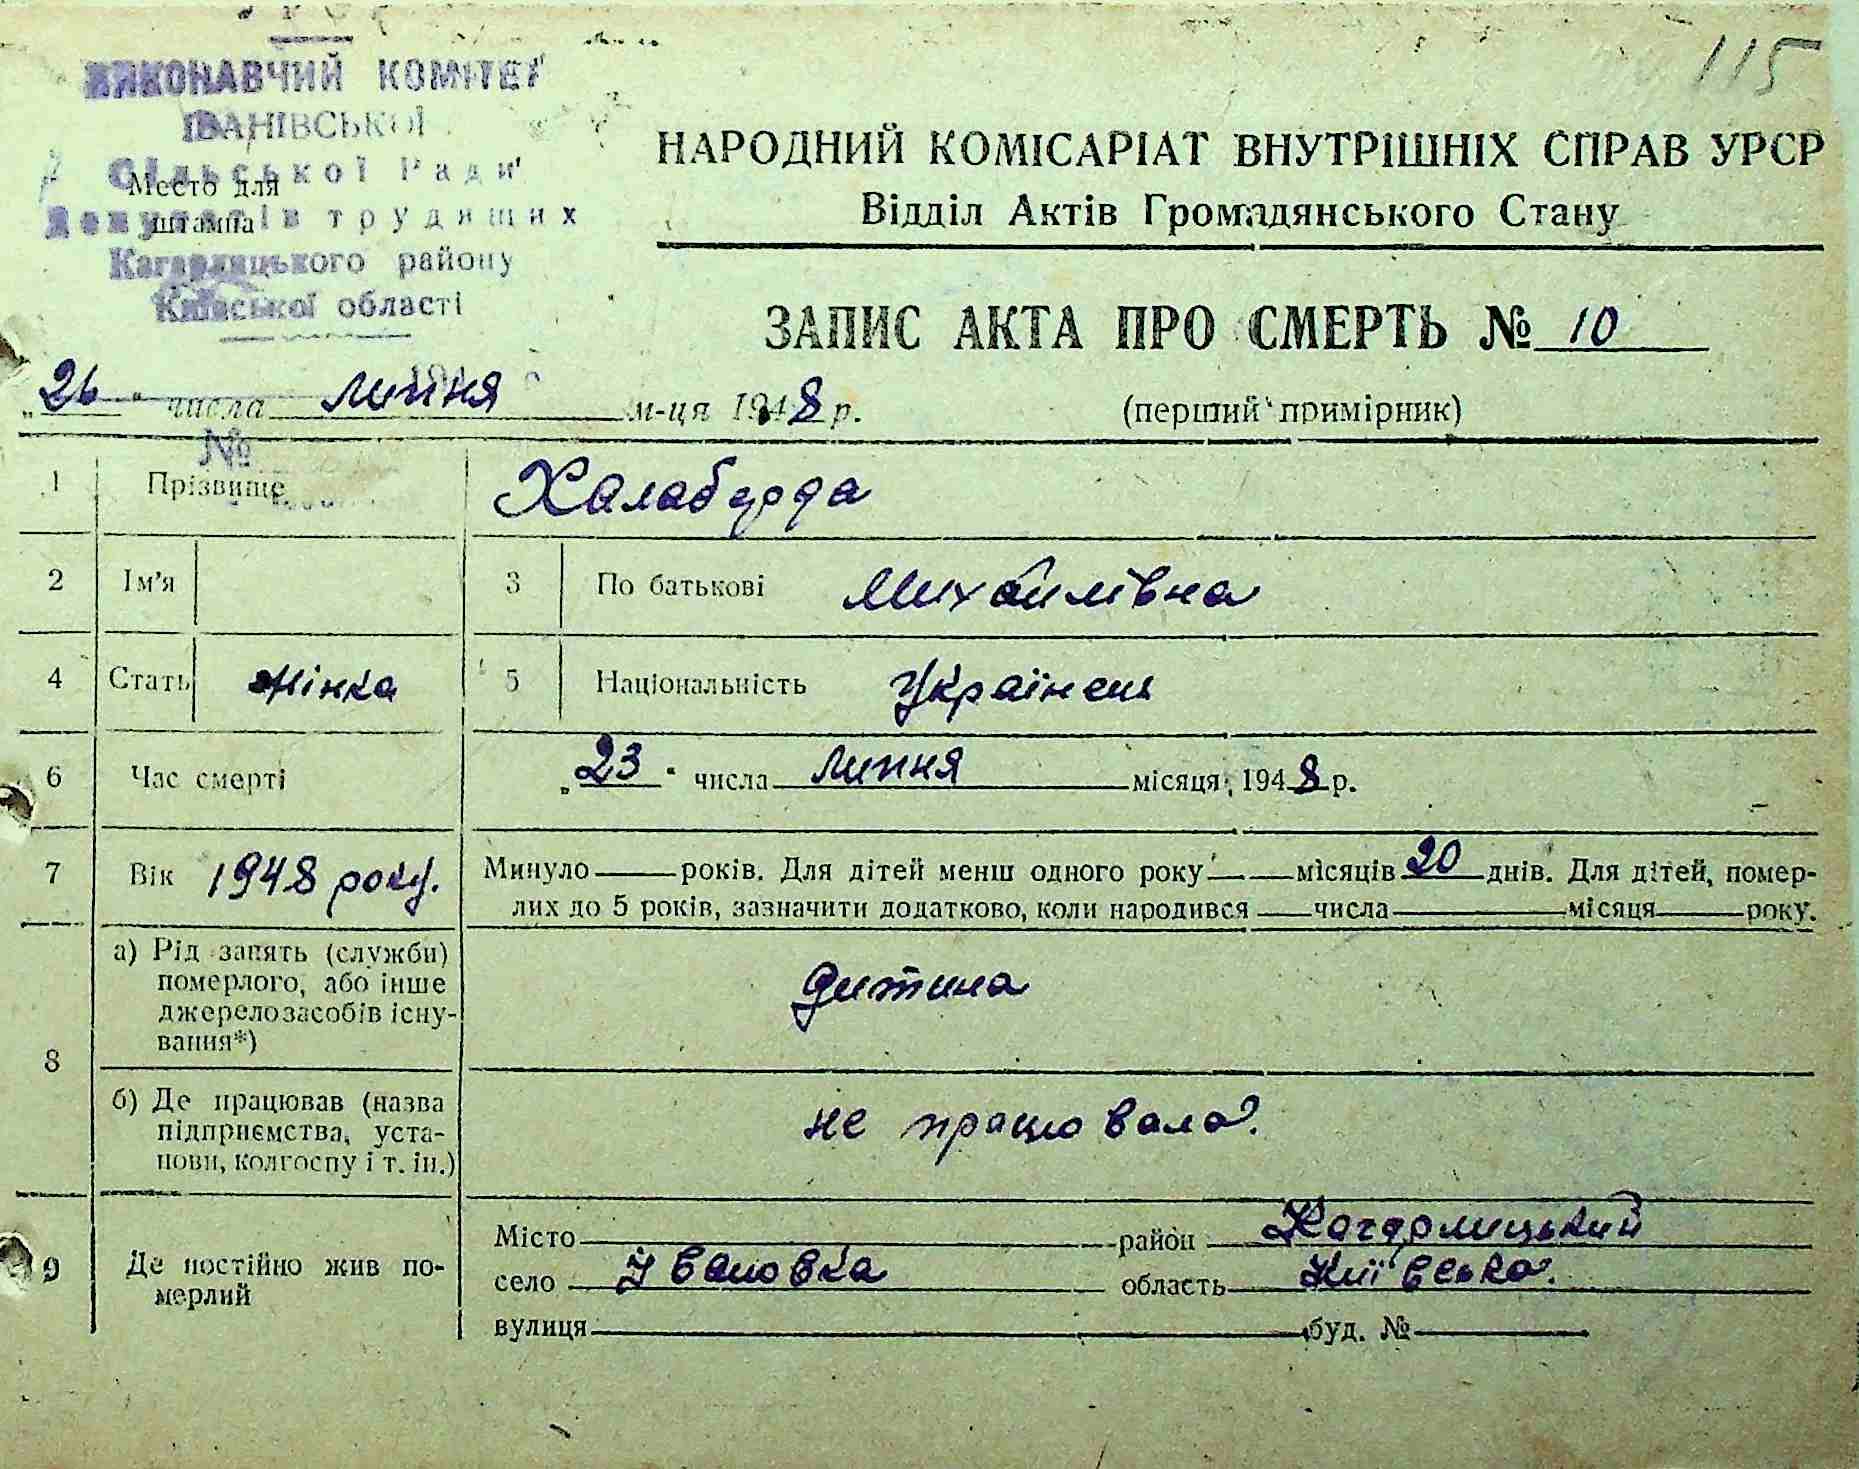 115
ВИКОНАВЧИЙ КОМІТЕТ
ІВАНІВСЬКОЇ
Сільської Ради
Депутатів трудящих
Кагарлицького району
Київської області
Место для
штампа
№
НАРОДНИЙ КОМІСАРІАТ ВНУТРІШНІХ СПРАВ УРСР
Відділ Актів Громадянського Стану
ЗАПИС АКТА ПРО СМЕРТЬ № 10
„26" числа липня м-ця 1948 р.
(перший примірник)
1 Прізвище Халабурда
2 Ім'я 3 По батькові Михайлівна
4 Стать жінка 5 Національність Українка
6 Час смерті „23" числа липня місяця 1948 р.
7 Вік 1948 року. Минуло — років. Для дітей менш одного року — місяців 20 днів. Для дітей, помер-
лих до 5 років, зазначити додатково, коли народився — числа — місяця — року.
8 а) Рід занять (служби)
померлого, або інше
джерело засобів існу-
вання*)
дитина
б) Де працював (назва
підприємства, уста-
нови, колгоспу і т. ін.)
не працювала.
9 Де постійно жив по-
мерлий
Місто район Кагарлицький
село Івановка область Київська.
вулиця буд. №